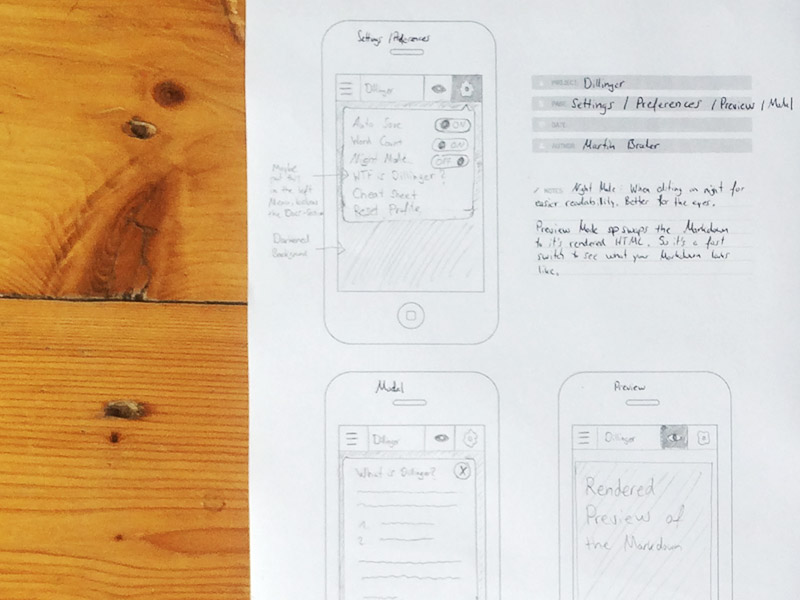 Settings / Preferences
Dillinger
Auto Save
ON
Word Count
ON
Night Mode
OFF
WTF is Dillinger?
Cheat Sheet
Reset Profile
Maybe
put this
in the left
Menu, below
the
Darkened
Background
PROJECT: Dillinger
PAGE: Settings / Preferences / Preview / Modal
DATE:
AUTHOR: Martin Broder
NOTES: Night Mode: When editing in night for
easier readability. Better for the eyes.
Preview Mode swaps the Markdown
to it's rendered HTML. So it's a fast
switch to see what your Markdown looks
like.
Modal
Dillinger
What is Dillinger?
X
1.
2.
Preview
Dillinger
Rendered
Preview of
the Markdown